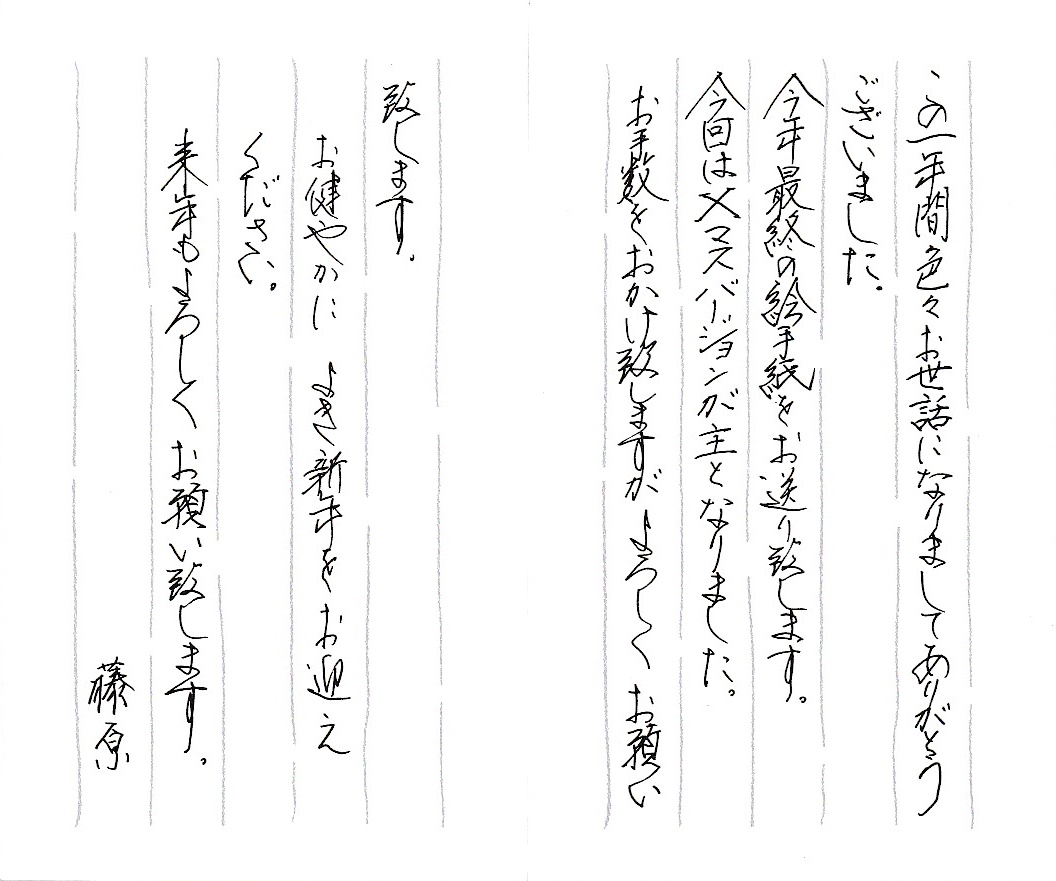 この一年間色々お世話になりましてありがとう
ございました。
今年最終の絵手紙をお送り致します。
今回はXマスバージョンが主となりました。
お手数をおかけ致しますがよろしくお願い
致します。
お健やかに よき新年をお迎え
ください。
来年もよろしくお願い致します。
藤原